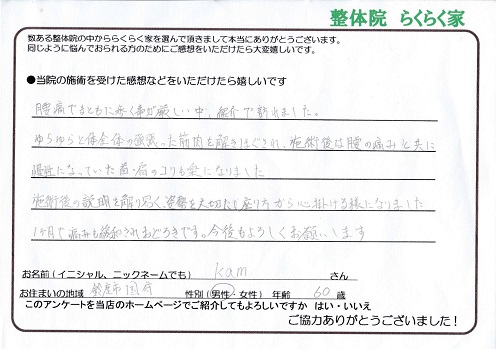 整体院 らくらく家
数ある整体院の中かららくらく家を選んで頂きまして本当にありがとうございます。
同じように悩んでおられる方のためにご感想をいただけたら大変嬉しいです。
●当院の施術を受けた感想などをいただけたら嬉しいです
腰痛でまともに歩く事が厳しい中、紹介で訪れました。
ゆらゆらと体全体の強張った筋肉を解きほぐされ、施術後は腰の痛みと共に
慢性になっていた首・肩のコリも楽になりました
施術後の説明も解り易く、姿勢を大切にし座り方から心掛ける様になりました
1ヶ月で痛みも緩和されおどろきです。今後もよろしくお願いします
お名前(イニシャル、ニックネームでも) kam さん
お住まいの地域 鈴鹿市 性別(男性・女性) 年齢 60 歳
このアンケートを当店のホームページでご紹介してもよろしいですか はい・いいえ
ご協力ありがとうございました！